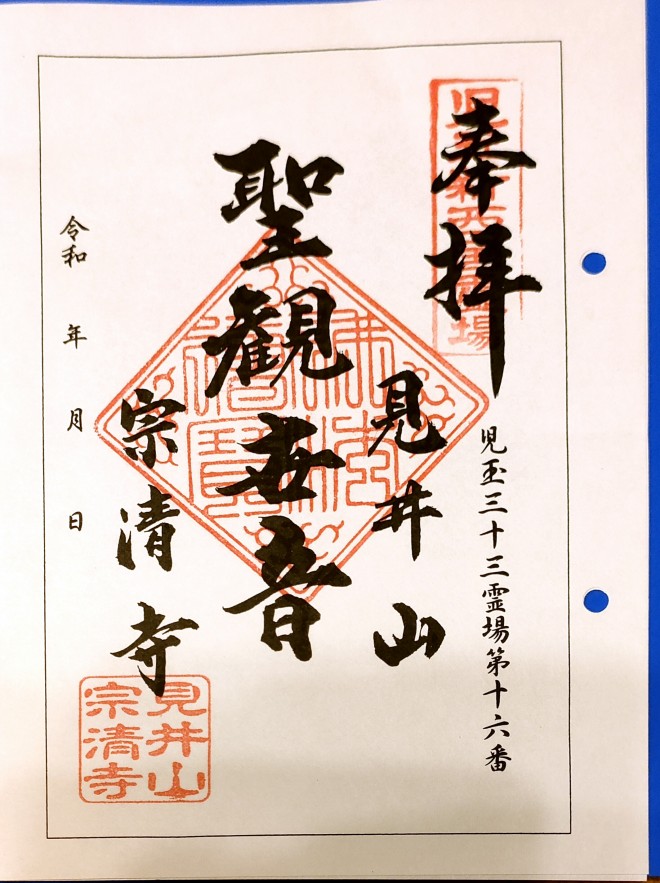 奉拝
児玉三十三霊場第十六番
見井山
聖観世音
宗清寺
令和 年 月 日
見井山
宗清寺